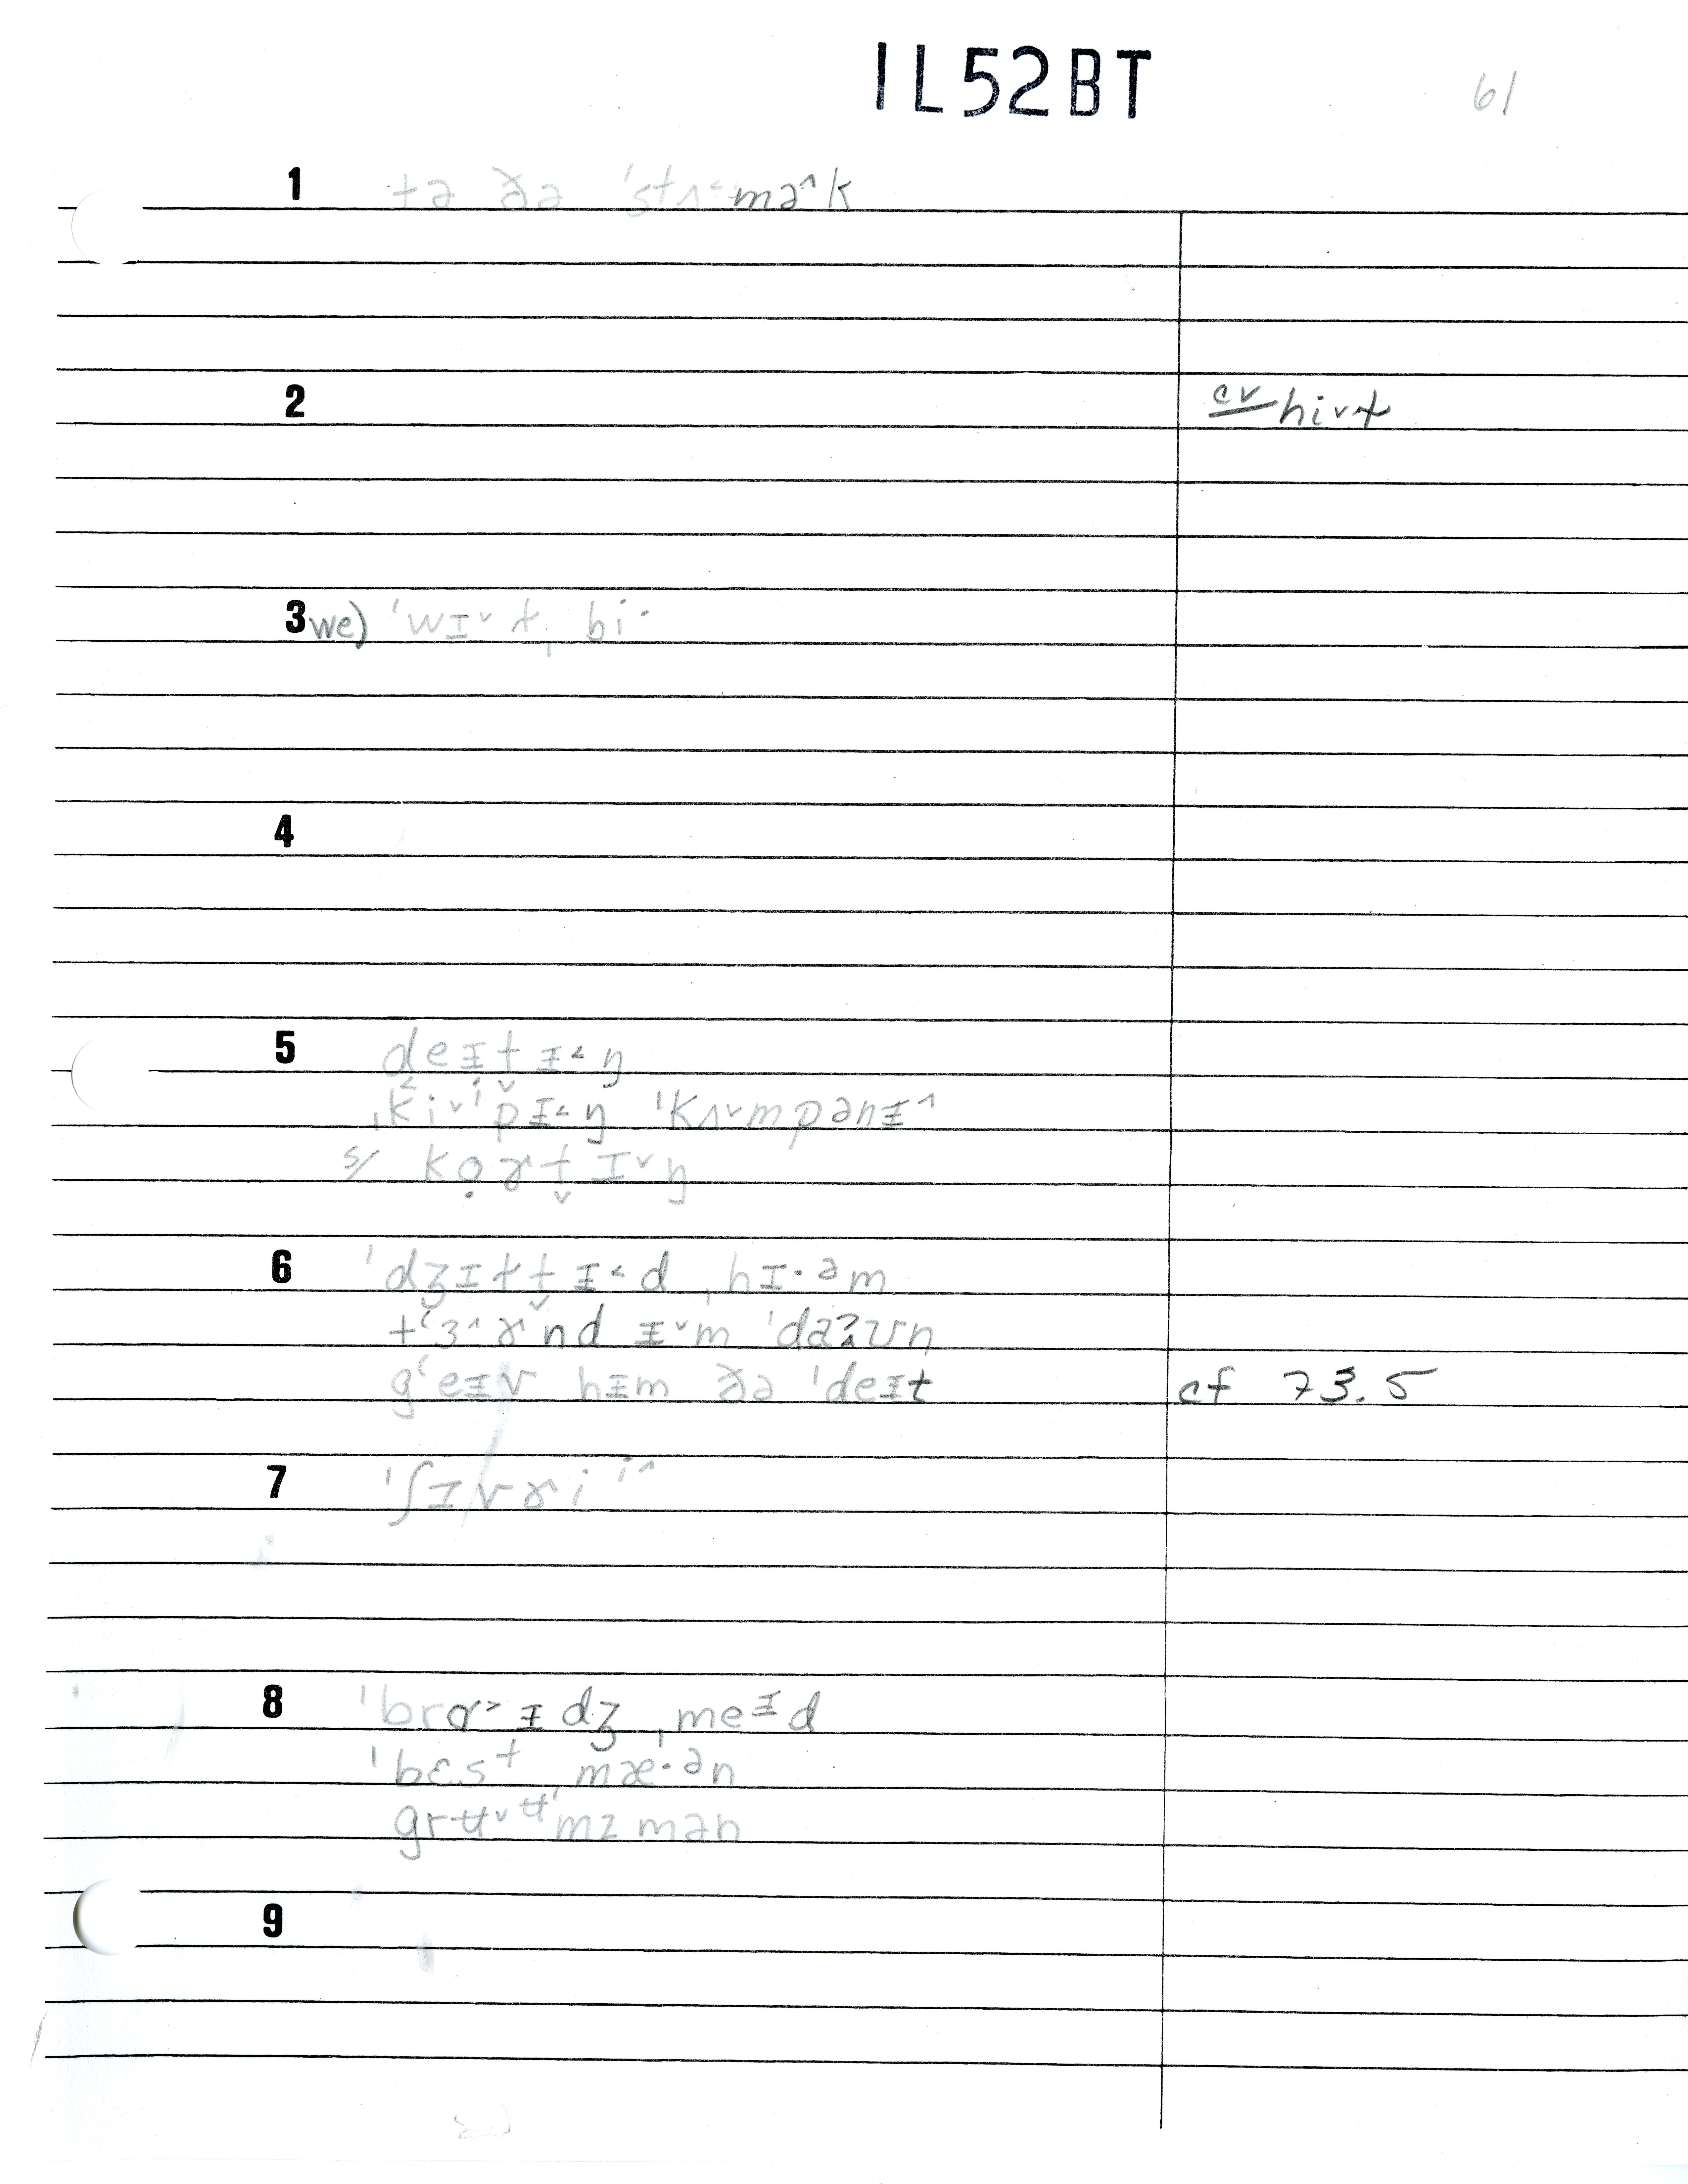 IL52BT
61
1 tə ðə ˈstʌ˂mə˄k
2 cv hi˅ɫ
3 we) ˈwɪ˅ɫˌbi·
4
5 deɪt̬ɨ˂ŋ
ˌk˂i˅ⁱpɨ˂ŋ ˈkʌ˅mpənɨ˄
s/ kọɚt̬ɪ˅ŋ
6 ˈdʒɪɫt̬ɨ˂d ˌhɪ·əm
tʻɜ˄ɚnd ɨ˅m ˈdaʔʊn
gʻeɪv hɨm ðə ˈdeɪt cf 73.5
7 ˈʃɪvɚiⁱ˄
8 ˈbrɑ˃ɨdʒˌmeɨd
ˈbɛstˌmæ·ən
grʉ˅ᶶmzmən
9